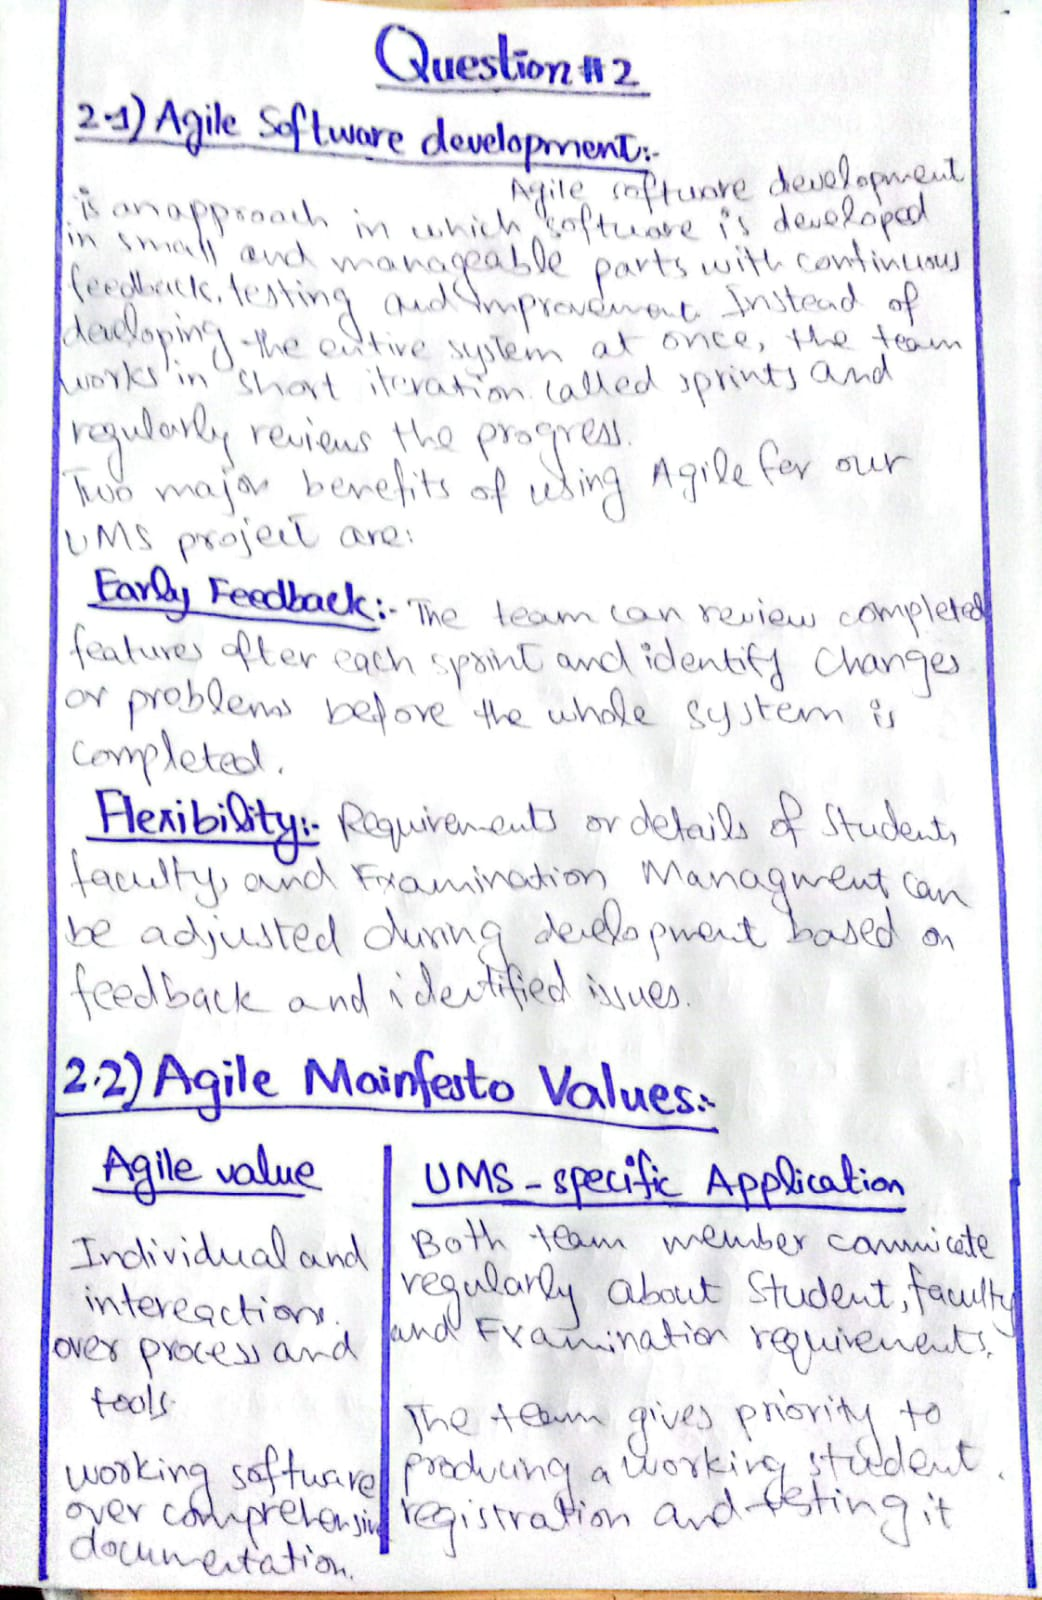 Question # 2
2.1) Agile Software development:-
Agile software development
is an approach in which software is developed
in small and manageable parts with continuous
feedback, testing and improvement. Instead of
developing the entire system at once, the team
works in short iteration called sprints and
regularly reviews the progress.
Two major benefits of using Agile for our
UMS project are:
Early Feedback:- The team can review completed
features after each sprint and identify changes
or problems before the whole system is
completed.
Flexibility:- Requirements or details of Student,
faculty, and Examination Managment can
be adjusted during development based on
feedback and identified issues.
2.2) Agile Mainfesto Values:-
Agile value
Individual and
intereactions.
over process and
tools.
working software
over comprehensive
documentation.
UMS - specific Application
Both team member communicate
regularly about Student, faculty
and Examination requirements.
The team gives priority to
producing a working student
registration and testing it